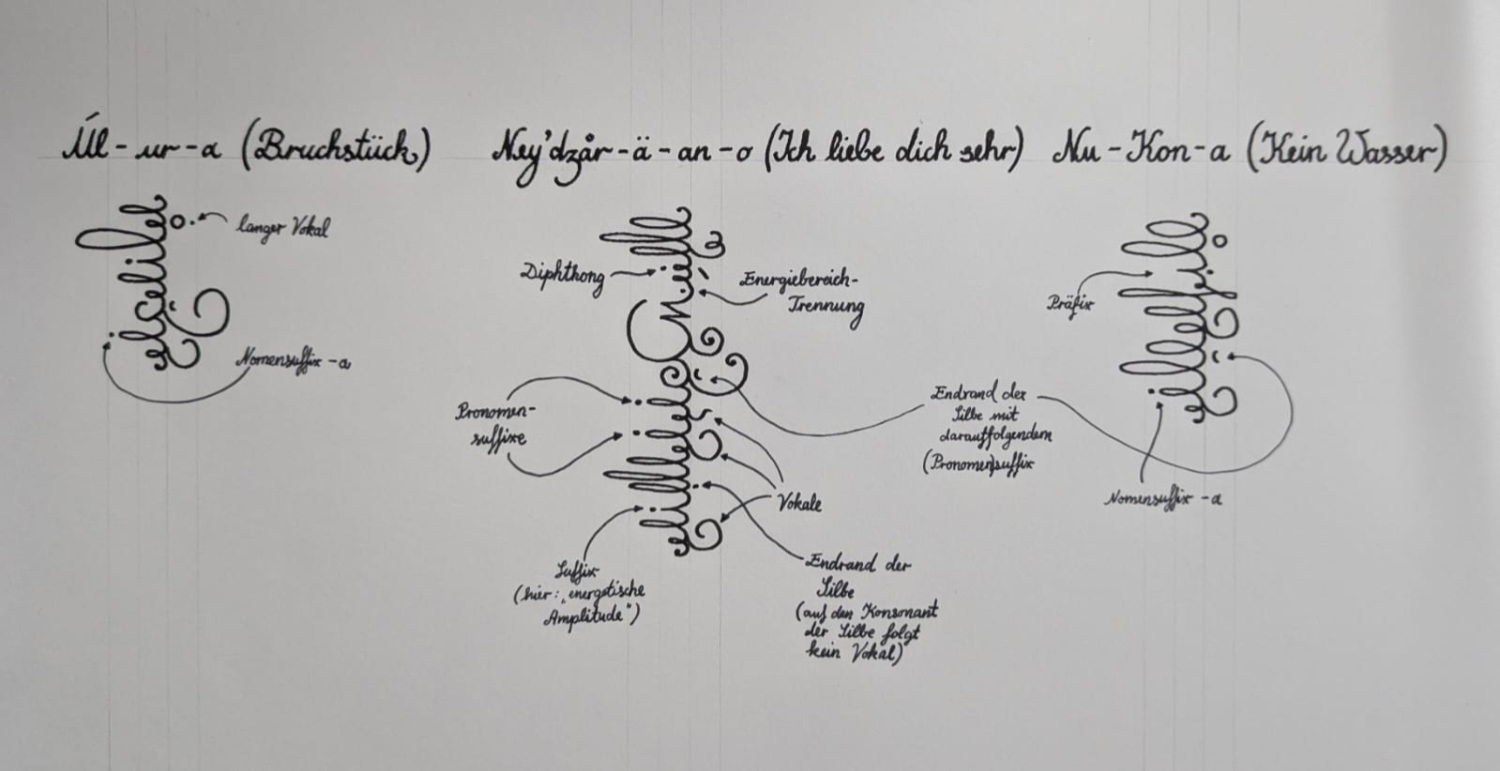 Úl-ur-a (Bruchstück)
Ney'dzår-ä-an-o (Ich liebe dich sehr)
Nu-Kon-a (Kein Wasser)
langer Vokal
Nomensuffix -a
Diphthong
Energiebereich-
Trennung
Pronomen-
suffixe
Vokale
Suffix
(hier: „energetische
Amplitude“)
Endrand der
Silbe
(auf den Konsonant
der Silbe folgt
kein Vokal)
Endrand der
Silbe mit
darauffolgendem
(Pronomen)suffix
Präfix
Nomensuffix -a